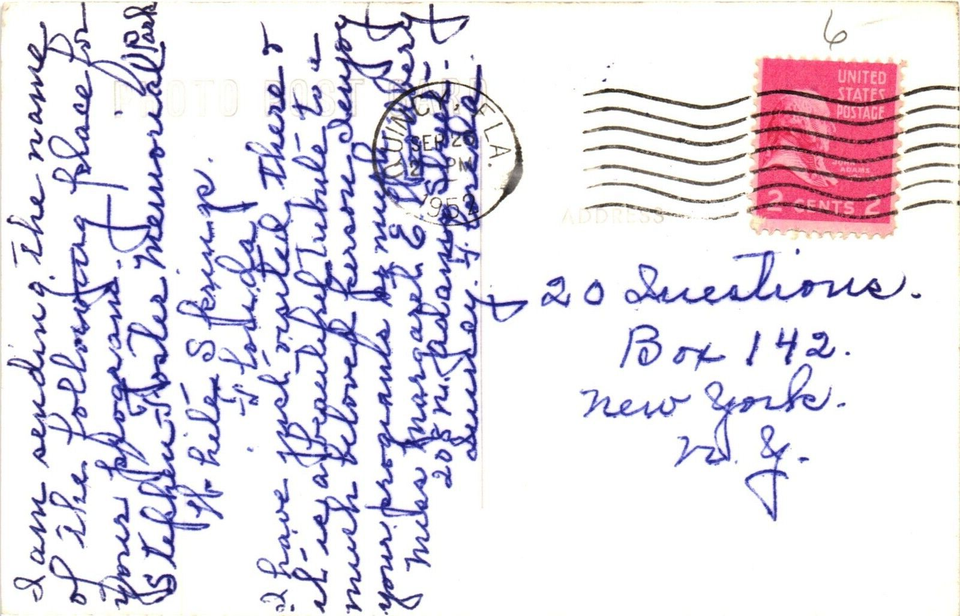 I am sending the name
of the following place for
your program.
Stephen Foster Memorial Park
White Springs.
Florida
I have just visited there &
it is a beautiful tribute to a
much beloved person. I enjoy
your programs so much.
Miss Margaret E.
205 N. Adams St.
Quincy. Florida.
PHOTO POST CARD
QUINCY, FLA.
SEP 26
2 PM
1952
6
UNITED
STATES
POSTAGE
JOHN
ADAMS
2 CENTS 2
ADDRESS
20 Questions.
Box 142.
New York.
N. Y.